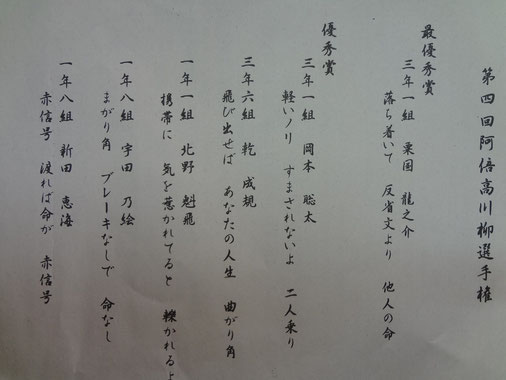 第四回阿倍高川柳選手権
最優秀賞
三年一組 栗国 龍之介
落ち着いて 反省文より 他人の命
優秀賞
三年一組 岡本 聡太
軽いノリ すまされないよ 二人乗り
三年六組 乾 成規
飛び出せば あなたの人生 曲がり角
一年一組 北野 魁飛
携帯に 気を惹かれてると 轢かれるよ
一年八組 宇田 乃絵
まがり角 ブレーキなしで 命なし
一年八組 新田 恵海
赤信号 渡れば命が 赤信号